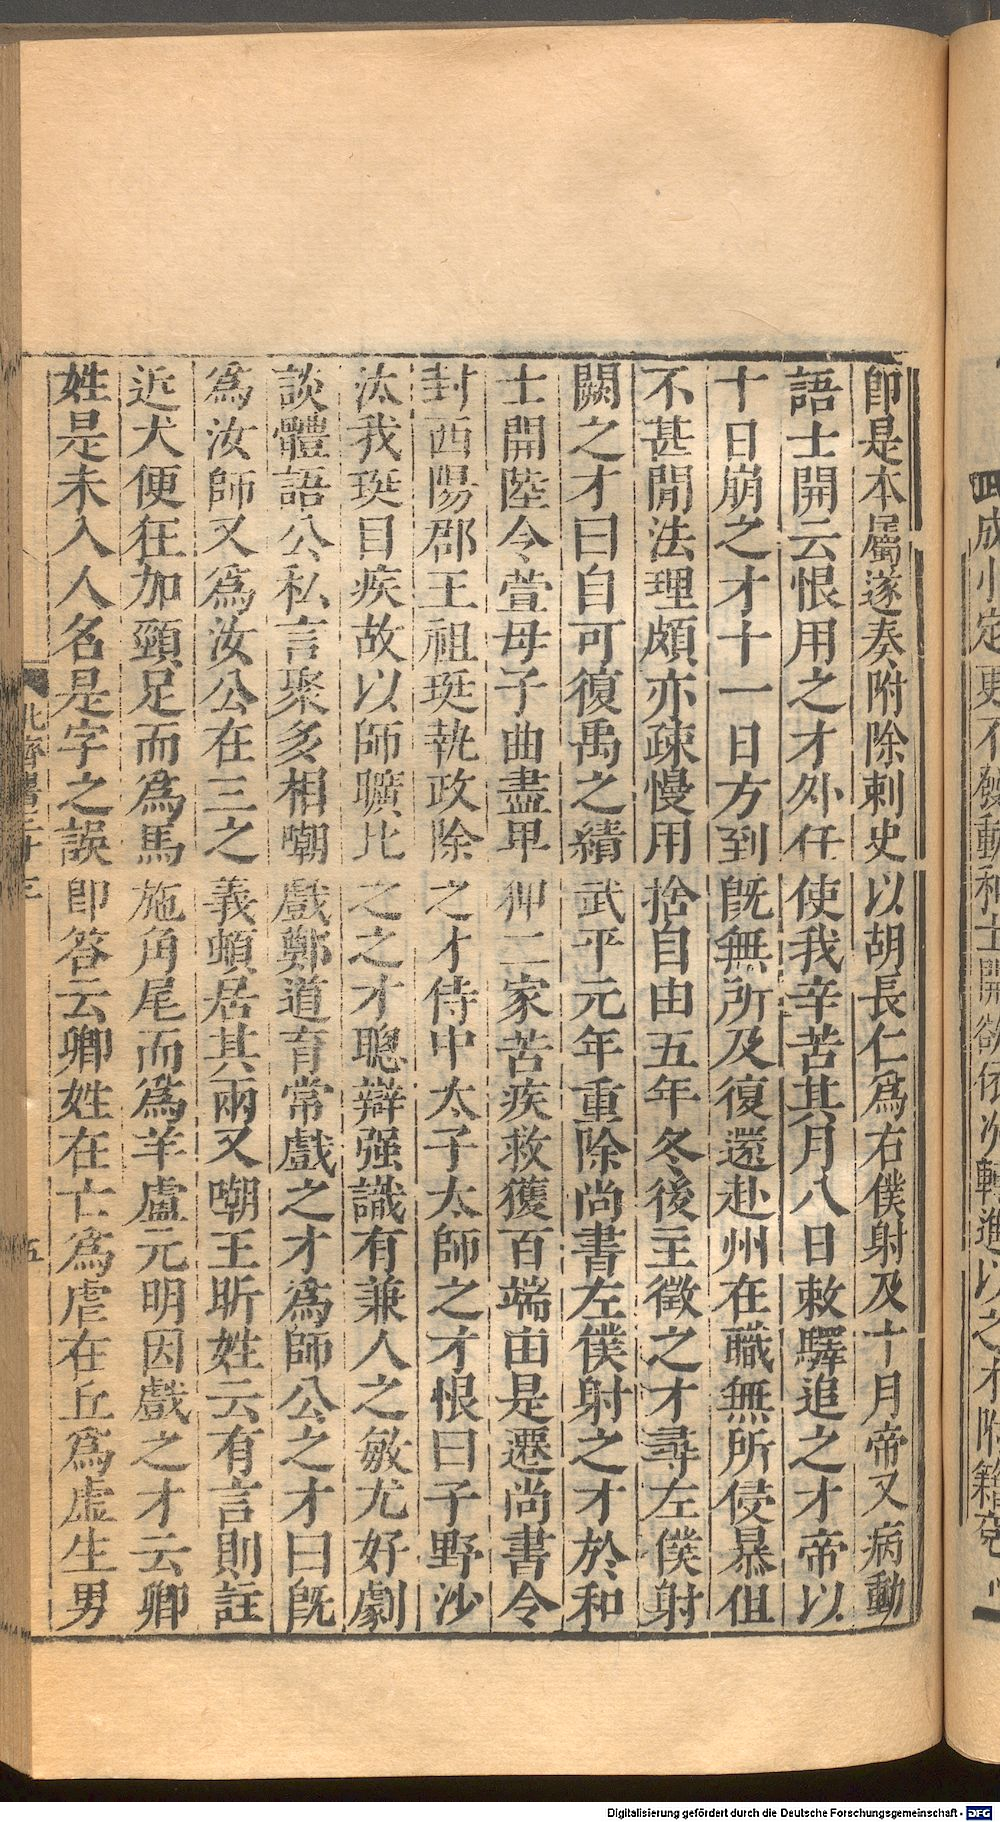 卽是本屬遂奏附除刺史以胡長仁爲右僕射及十月帝又病動
語士開云恨用之才外任使我辛苦其月八日敕驛追之才帝以
十日崩之才十一日方到旣無所及復還赴州在職無所侵暴但
不甚閒法理頗亦疎慢用捨自由五年冬後主徵之才尋左僕射
闕之才曰自可復禹之績武平元年重除尚書左僕射之才於和
士開陸令萱母子曲盡卑狎二家苦疾救獲百端由是遷尚書令
封西陽郡王祖珽執政除之才侍中太子太師之才恨曰子野沙
汰我珽目疾故以師曠比之之才聰辯强識有兼人之敏尤好劇
談體語公私言聚多相嘲戲鄭道育常戲之才爲師公之才曰旣
爲汝師又爲汝公在三之義頓居其兩又嘲王昕姓云有言則註
近犬便狂加頸足而爲馬施角尾而爲羊盧元明因戲之才云卿
姓是未入人名是字之誤卽答云卿姓在亡爲虐在丘爲虛生男
北齊書三十三
五
武成小定更不發動和士開欲依次轉進以之才附籍兗
Digitalisierung gefördert durch die Deutsche Forschungsgemeinschaft - DFG